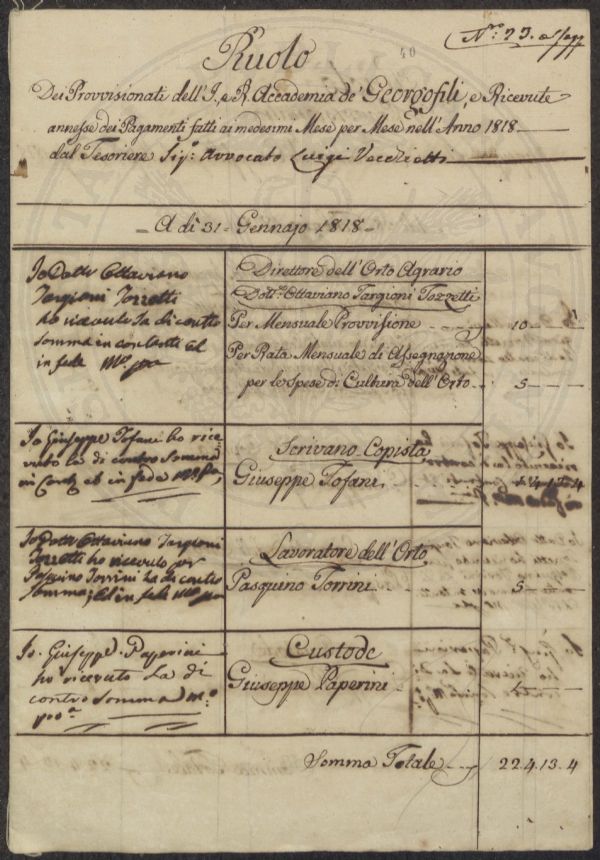 N.° 23.
40
Ruolo
Dei Provvisionati dell'I. e R. Accademia de' Georgofili, e Ricevute
annesse dei Pagamenti fatti ai medesimi Mese per Mese nell'Anno 1818-
dal Tesoriere Sig.: Avvocato Luigi Vecchietti
A dì 31 - Gennajo 1818 -
Io Dott.r Ottaviano
Targioni Tozzetti
ho ricevuto la di contro
somma in contante ed
in fede M.° pa
Direttore dell'Orto Agrario
Dott.re Ottaviano Targioni Tozzetti
Per Mensuale Provvisione 10
Per Rata Mensuale di Assegnazione
per le Spese di Cultura dell'Orto 5
Io Giuseppe Tofani ho rice-
vuto la di contro Somma
in ed in fede M.° pa
Scrivano Copista
Giuseppe Tofani 4 4
Io Dott.r Ottaviano Targioni
Tozzetti ho ricevuto per
Pasquino Torrini la di contro
Somma, ed in fede M.° pa
Lavoratore dell'Orto
Pasquino Torrini 5
Io Giuseppe Paperini
ho ricevuto La di
contro Somma M.°
po.a
Custode
Giuseppe Paperini
Somma Totale 22.4.13.4